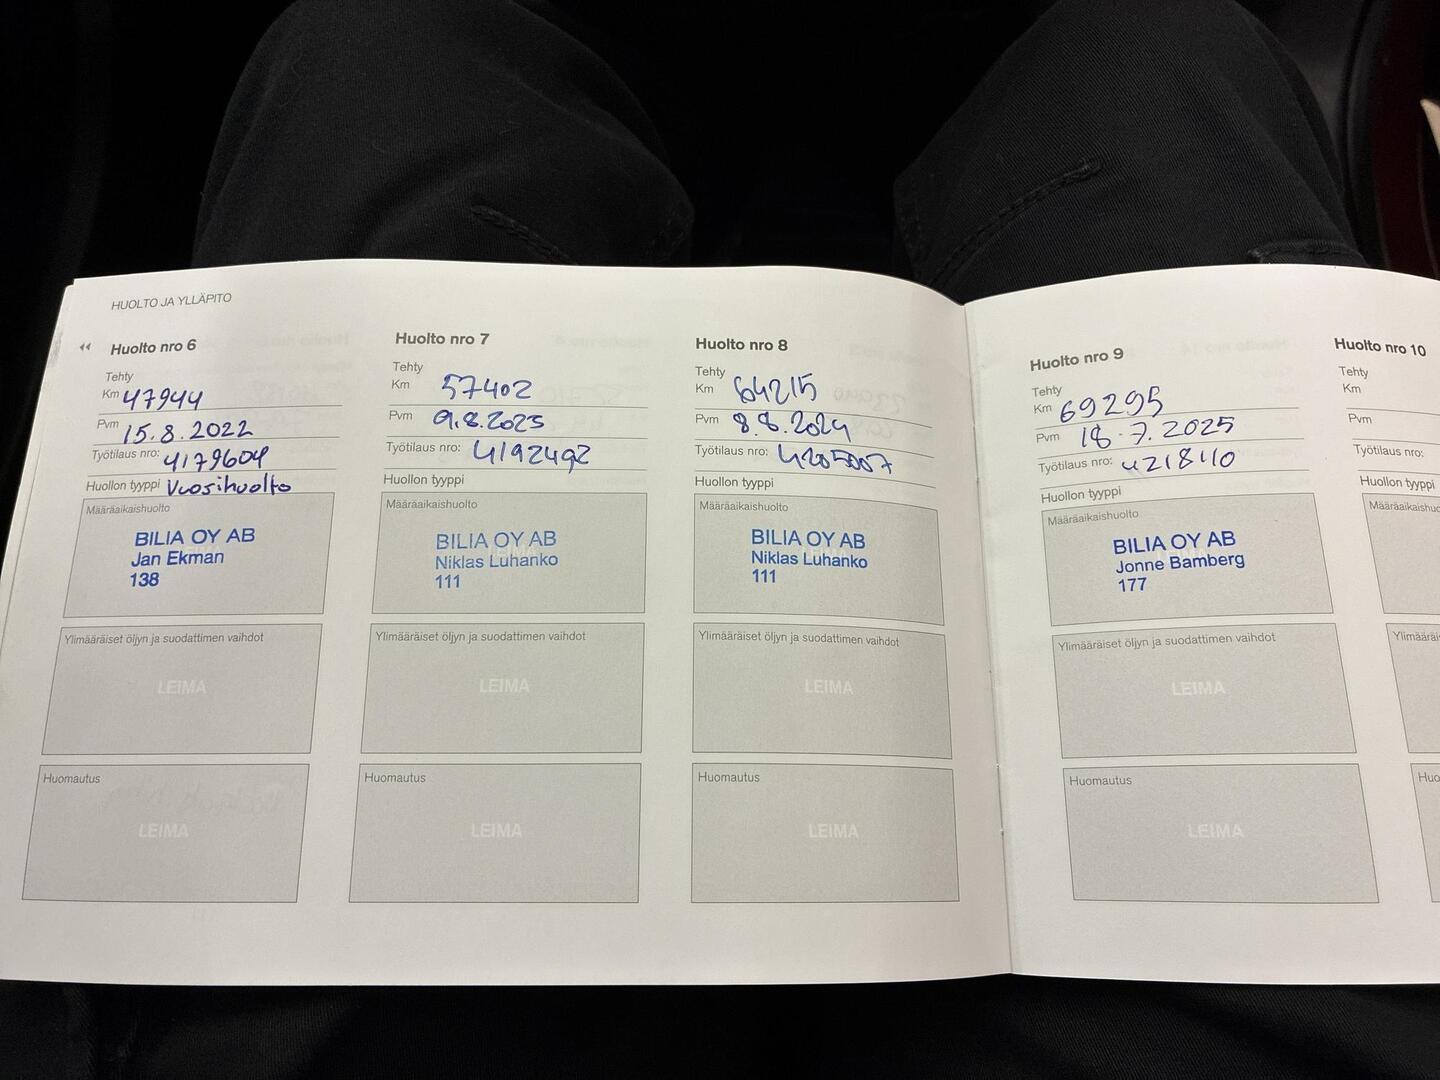 HUOLTO JA YLLÄPITO
Huolto nro 6
Tehty
Km 47944
Pvm 15.8.2022
Työtilaus nro: 4179604
Huollon tyyppi Vuosihuolto
Määräaikaishuolto
BILIA OY AB
Jan Ekman
138
Ylimääräiset öljyn ja suodattimen vaihdot
LEIMA
Huomautus
LEIMA
Huolto nro 7
Tehty
Km 57402
Pvm 9.8.2023
Työtilaus nro: 4192492
Huollon tyyppi
Määräaikaishuolto
BILIA OY AB
Niklas Luhanko
111
Ylimääräiset öljyn ja suodattimen vaihdot
LEIMA
Huomautus
LEIMA
Huolto nro 8
Tehty
Km 64215
Pvm 8.8.2024
Työtilaus nro: 4205007
Huollon tyyppi
Määräaikaishuolto
BILIA OY AB
Niklas Luhanko
111
Ylimääräiset öljyn ja suodattimen vaihdot
LEIMA
Huomautus
LEIMA
Huolto nro 9
Tehty
Km 69295
Pvm 18.7.2025
Työtilaus nro: 4218410
Huollon tyyppi
Määräaikaishuolto
BILIA OY AB
Jonne Bamberg
177
Ylimääräiset öljyn ja suodattimen vaihdot
LEIMA
Huomautus
LEIMA
Huolto nro 10
Tehty
Km
Pvm
Työtilaus nro:
Huollon tyyppi
Määräaikaishuo
Ylimäärä
Huo